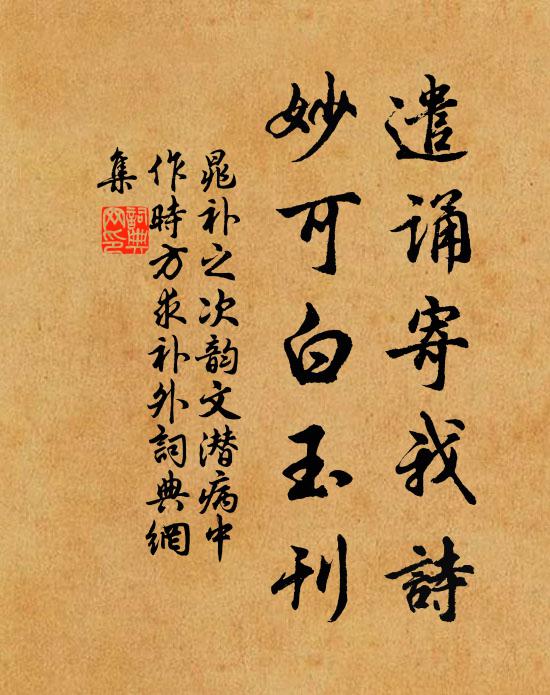 遣诵寄我詩
妙可白玉刊
晁补之次韵文潜病中
作時方求补外詞典網
集
詞典
网印